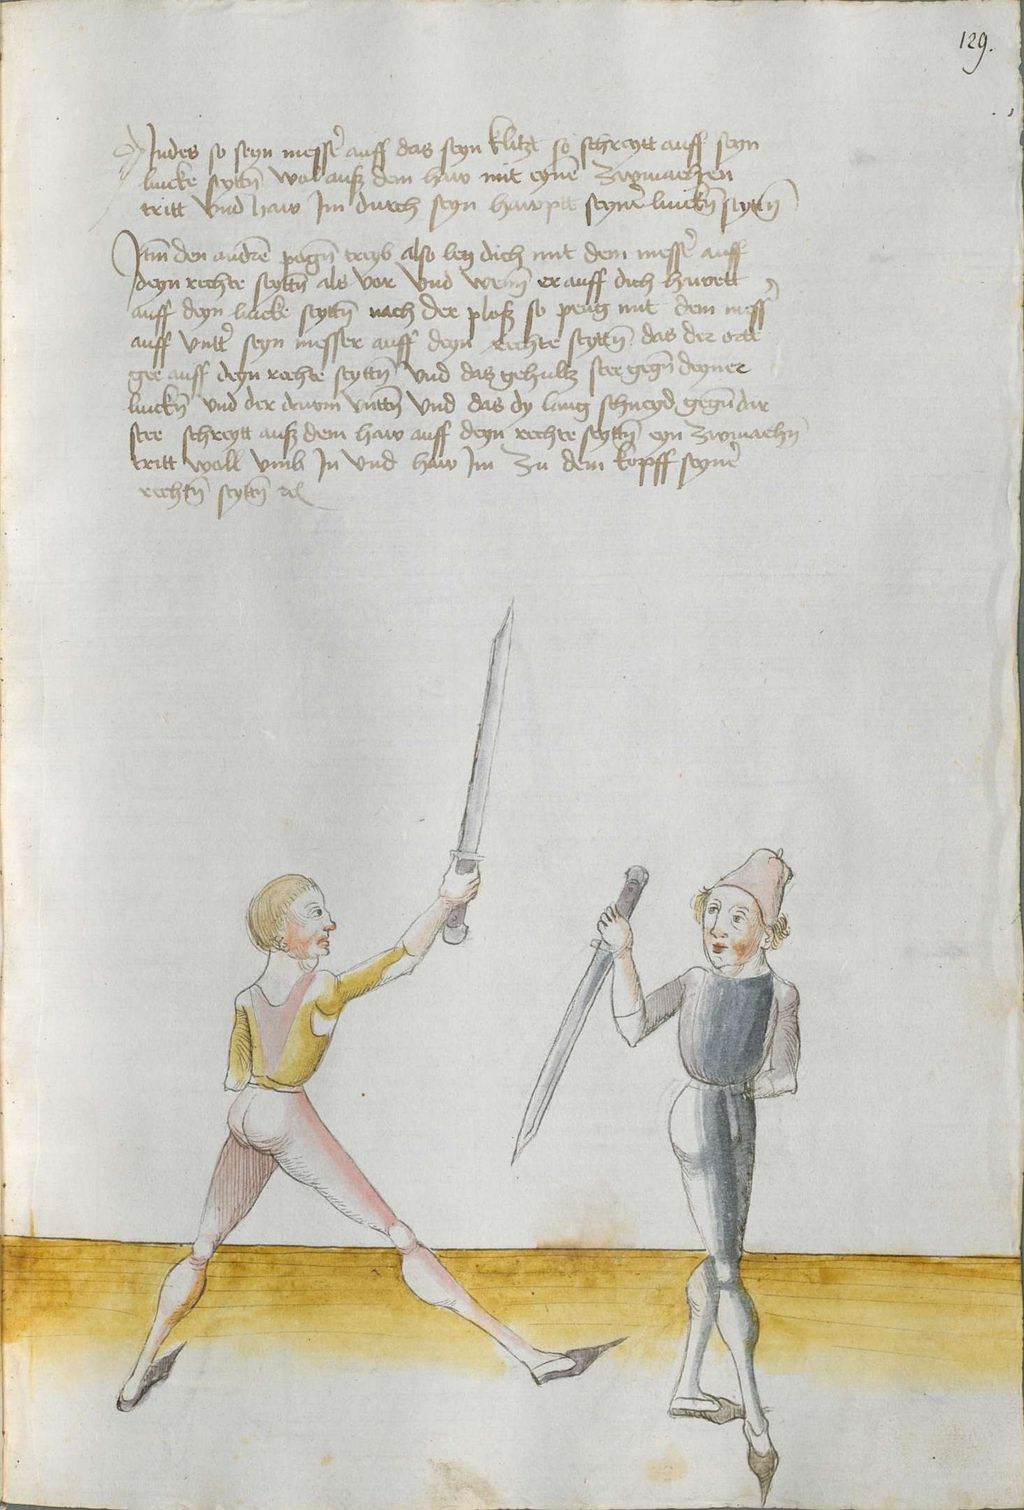 129.
Indes so seyn messer auff das seyn klitzt so schreytt auff seyn
lincke seyttñ wol auß dem haw mit eynē zwyuachen
tritt vnd haw Im durch seyn hawptt seyner linckñ seyttñ
Itm̄ den andrē pogñ treyb also leg dich mit dem messer auff
deyn rechte seyttñ als vor vnd wenn er auff dich hawett
auff deyn lincke seyttñ nach der plosß so peug mit dem mess
auff vntter seyn messer auff deyn rechte seyttñ das der ortt
gee auff deyn rechte seyttñ vnd das gehultz stee gegñ deyner
linckñ vnd der dawm vnttñ vnd das dy lang schneyd gegñ dir
stee schreytt auß dem haw auff deyn rechte seyttñ eyn zwyuachñ
tritt woll vmb In vnd haw Im zu dem kopff seyner
rechtñ seyttñ